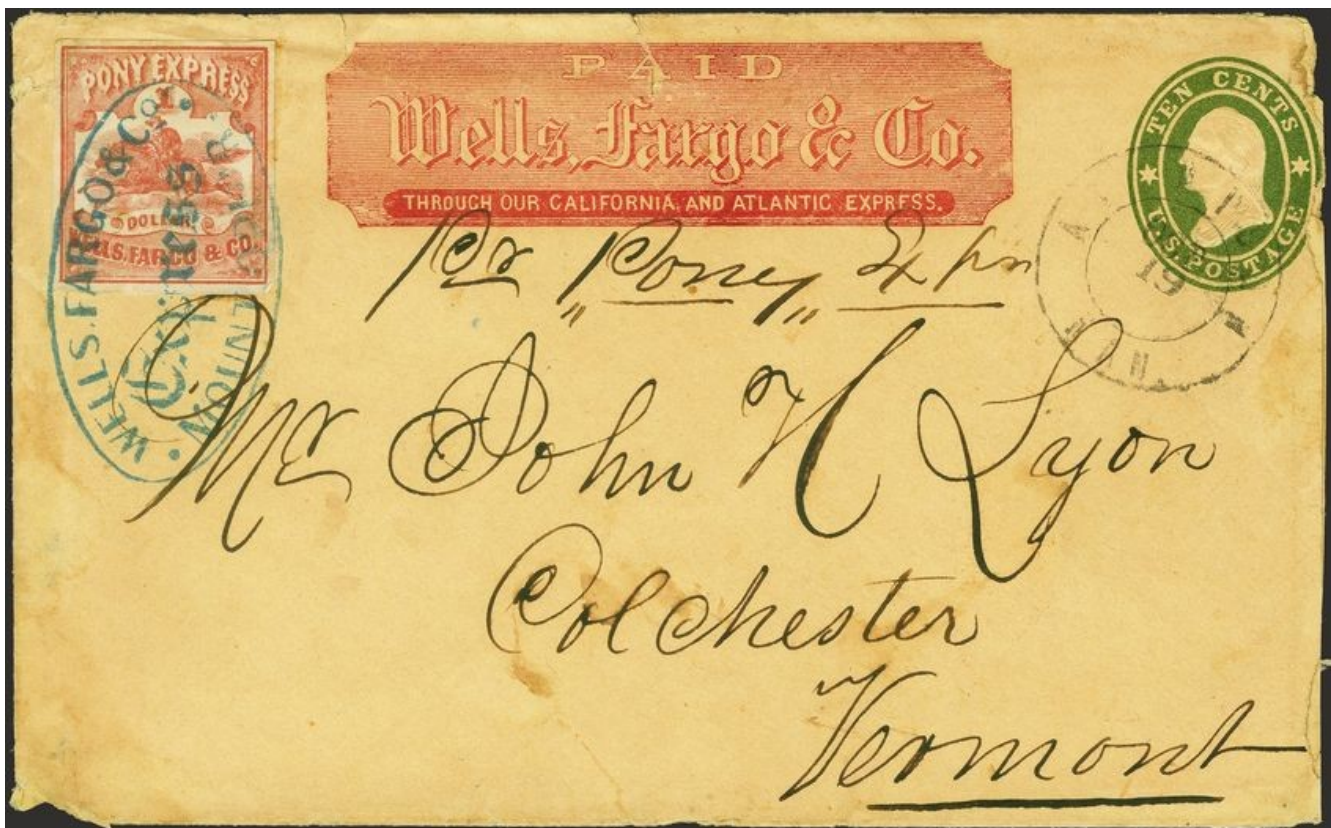 PONY EXPRESS
DOLLAR
WELLS. FARGO & CO.
WELLS. FARGO & Co.
Express
PAID
Wells, Fargo & Co.
THROUGH OUR CALIFORNIA AND ATLANTIC EXPRESS.
TEN CENTS
U.S. POSTAGE
19
Pr "Poney" Exprs
Mr John H Lyon
Colchester
Vermont